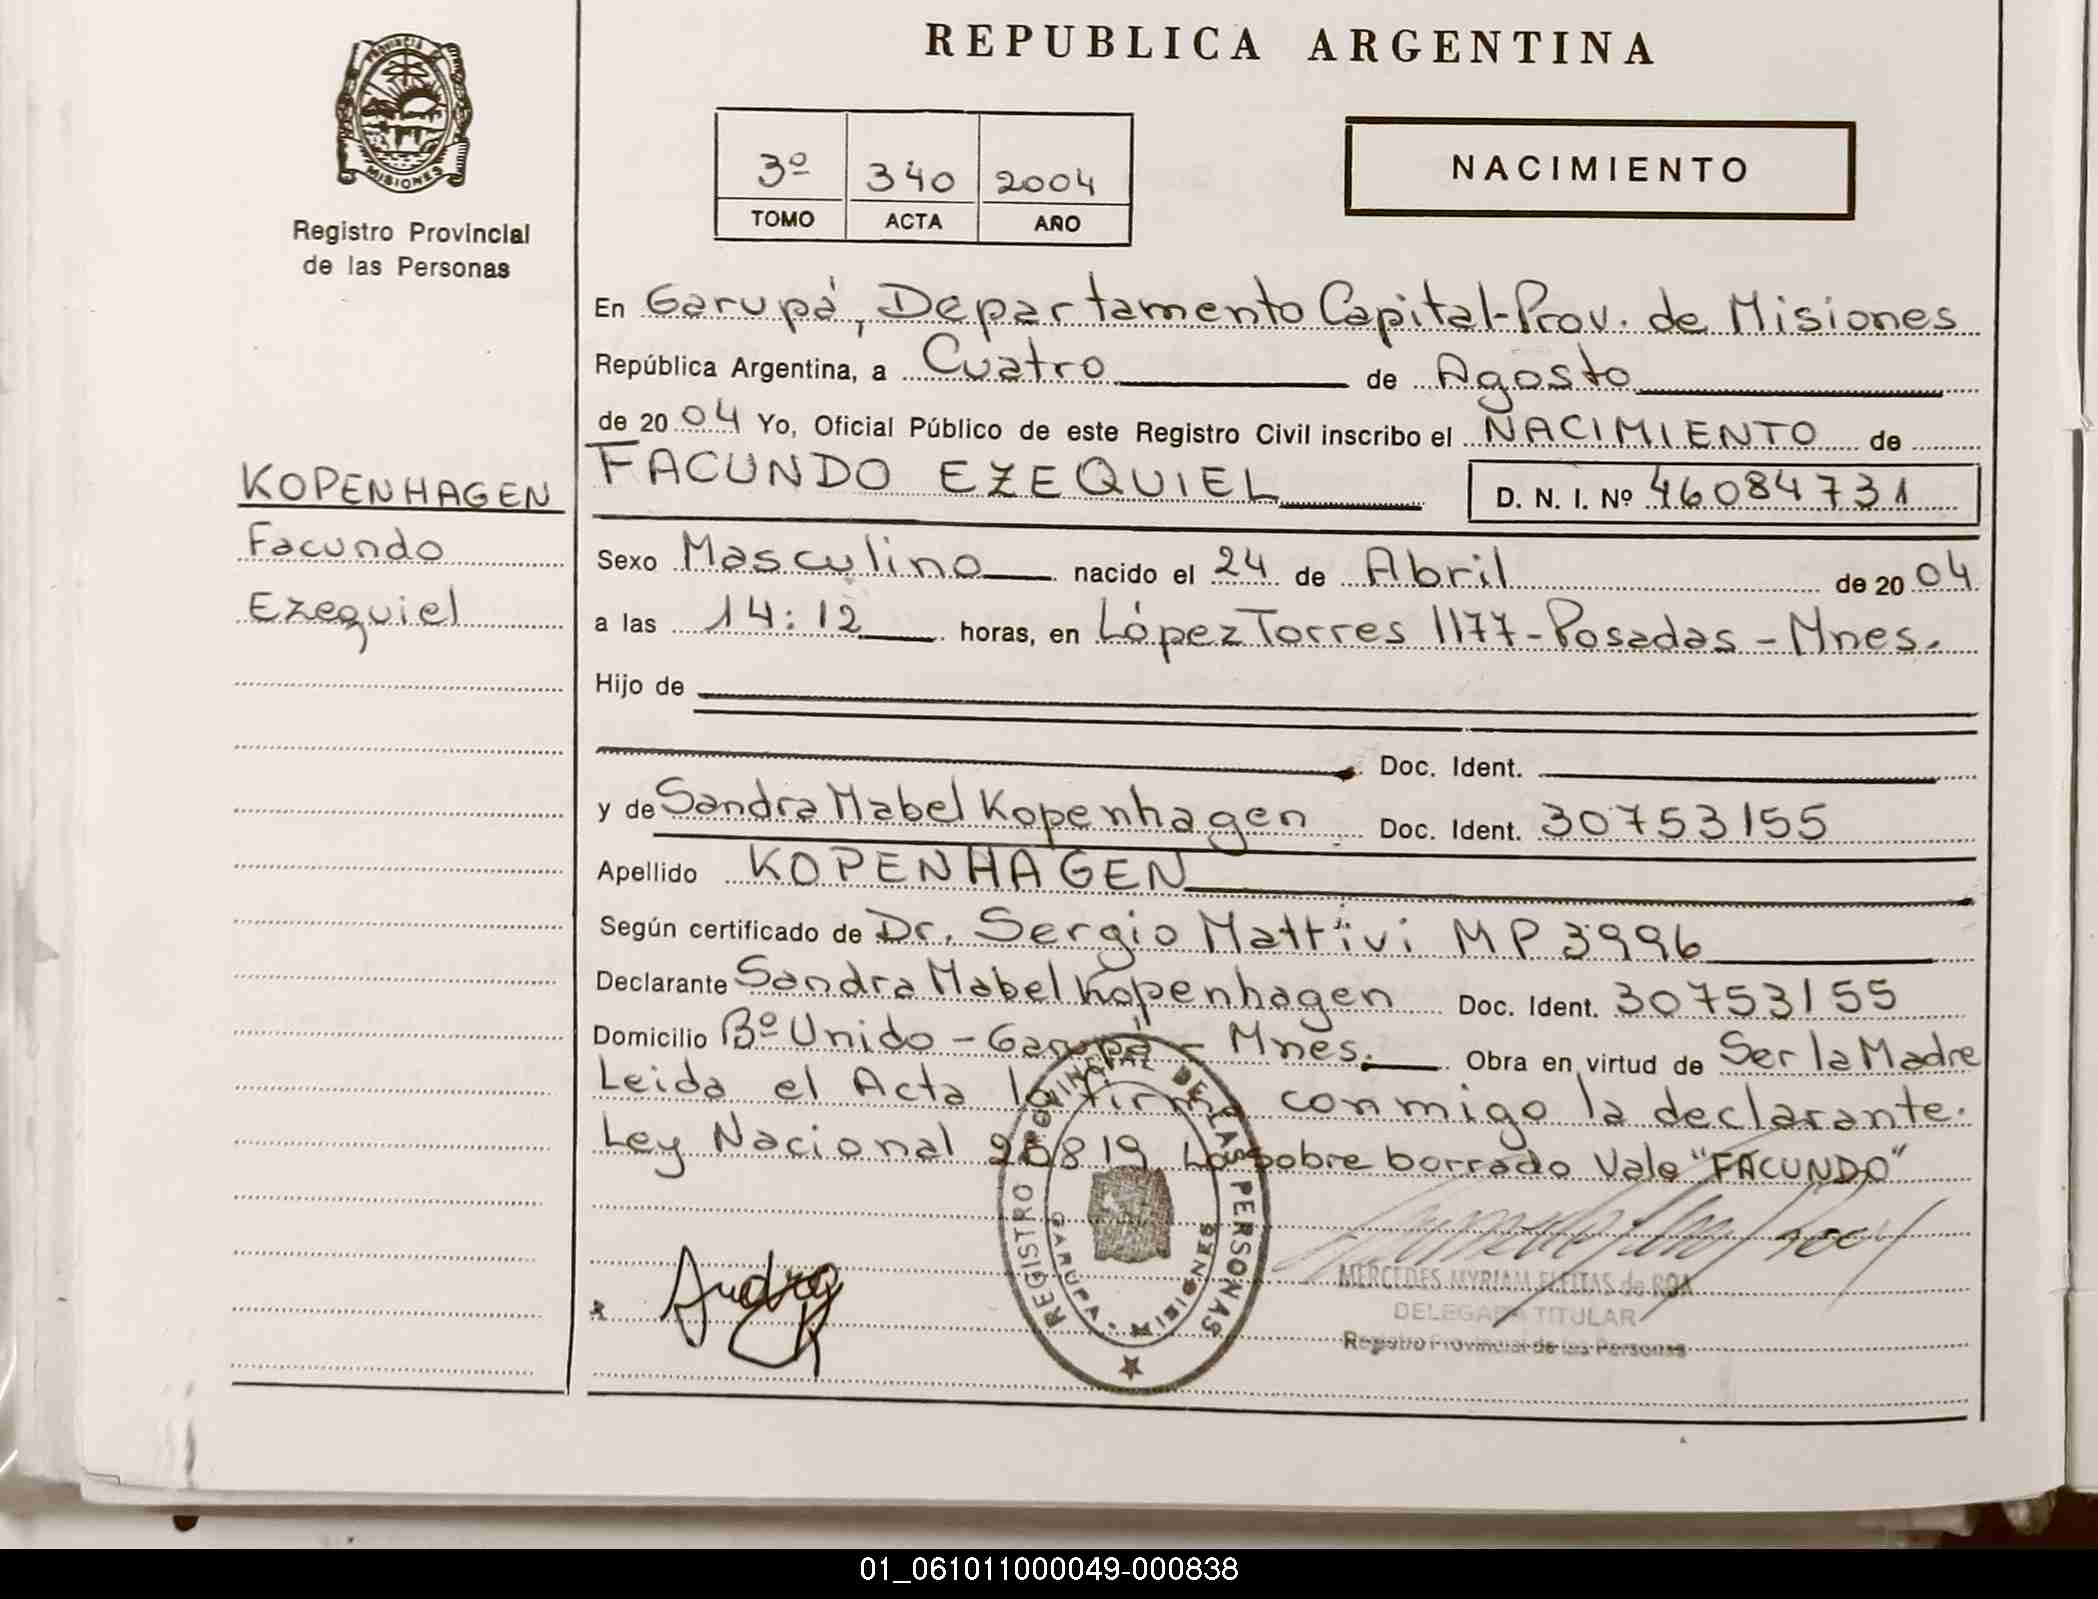 PROVINCIA DE
MISIONES
Registro Provincial
de las Personas
REPUBLICA ARGENTINA
3º 340 2004
TOMO ACTA AÑO
NACIMIENTO
En Garupá, Departamento Capital-Prov. de Misiones
República Argentina, a Cuatro de Agosto
de 2004 Yo, Oficial Público de este Registro Civil inscribo el NACIMIENTO de
KOPENHAGEN
Facundo
Ezequiel
FACUNDO EZEQUIEL D. N. I. Nº 46084731
Sexo Masculino nacido el 24 de Abril de 2004
a las 14:12 horas, en López Torres 1177-Posadas-Mnes.
Hijo de
Doc. Ident.
y de Sandra Mabel Kopenhagen Doc. Ident. 30753155
Apellido KOPENHAGEN
Según certificado de Dr. Sergio Mattivi MP 3996
Declarante Sandra Mabel Kopenhagen Doc. Ident. 30753155
Domicilio Bº Unido - Garupá - Mnes. Obra en virtud de Ser la Madre
Leida el Acta la firma conmigo la declarante.
Ley Nacional 25819 Lo sobre borrado Vale "FACUNDO"
REGISTRO PROVINCIAL DE LAS PERSONAS
GARUPA · MISIONES
MERCEDES MYRIAM FLEITAS de ROA
DELEGADA TITULAR
Registro Provincial de las Personas
01_061011000049-000838